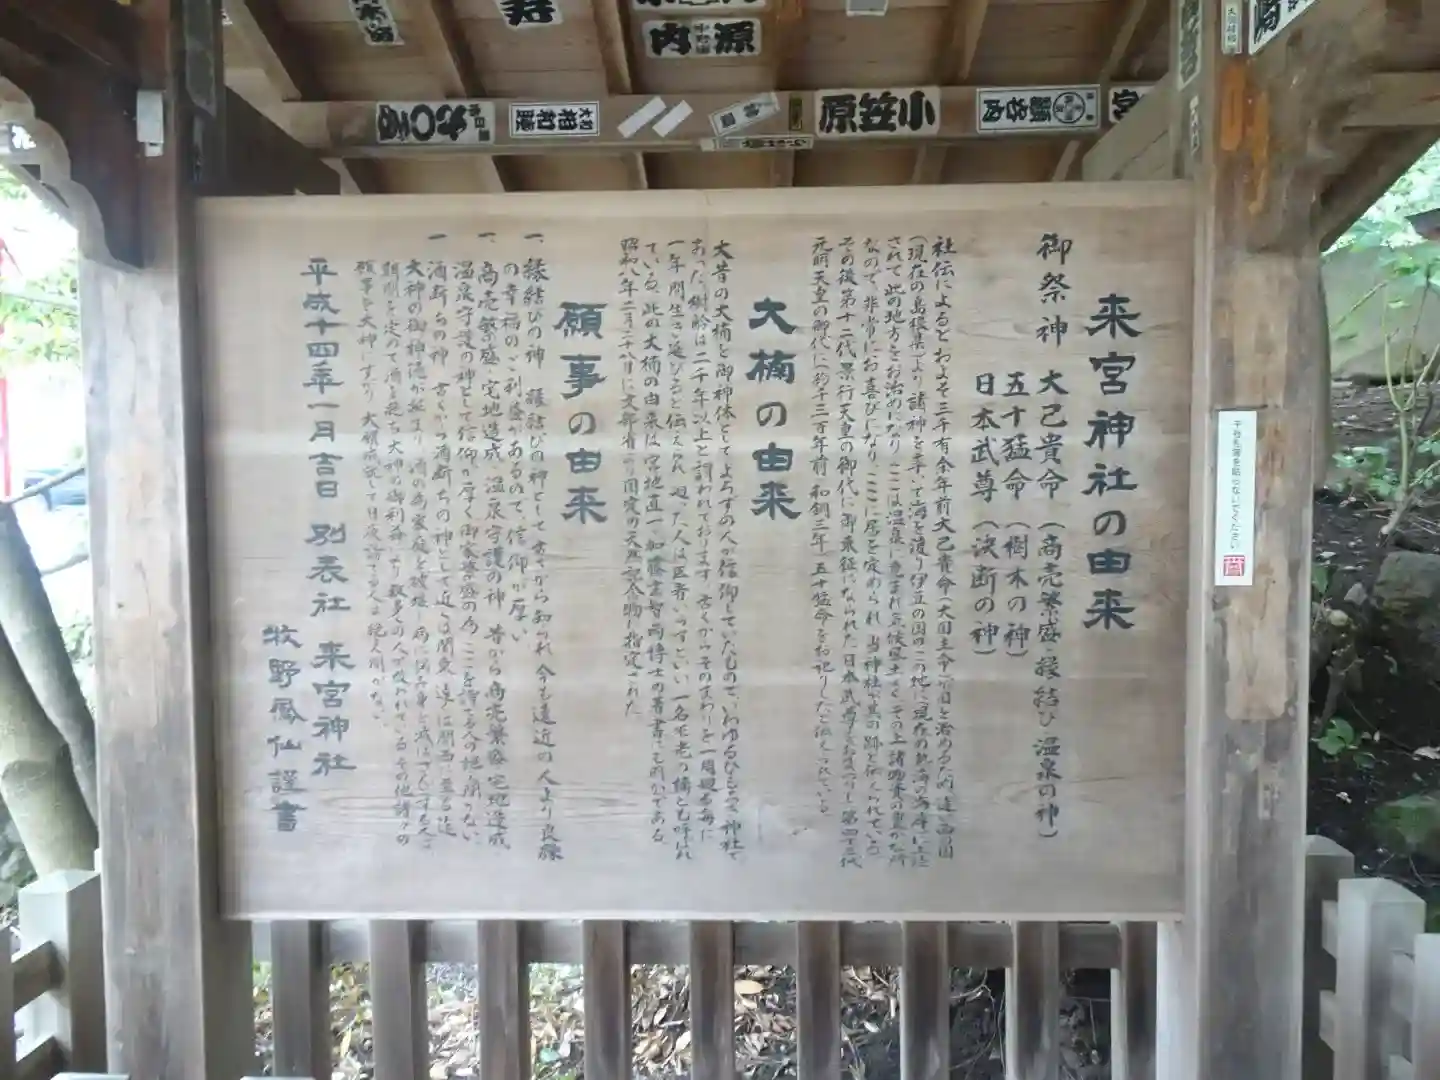 来宮神社の由来
御祭神 大己貴命(商売繁盛・縁結び・温泉の神)
五十猛命(樹木の神)
日本武尊(決断の神)
社伝によるとおよそ三千有余年前大己貴命(大国主命)
(現在の島根県)より諸神を率いて海を渡り伊豆の国のこの地に(現在の熱海の海岸に上陸
されて此の地方をお治めになりここは温泉に恵まれ気候温よくその上諸物
なので、非常にお喜びになり、ここに居を定められ、当神社が其の跡と伝えられている。
その後第十二代景行天皇の御代に御東征になられた日本武尊を 第四十三代
元明天皇の御代に(約千三百年前)和銅三年、五十猛命をお祀りしたと伝えられている
大楠の由来
大昔の大楠を御神体としてよろずの人が信仰していたもので、いわゆるひもろぎ神社で
あった。樹齢は二千年以上と謂われております。古くからそのまわりを一周廻る毎に
一年間生き延びると伝えられ、廻った人は医者いらずといい一名不老の楠とも呼ばれ
ている。此の大楠の由来は宮地直一 加藤玄智両博士の著書にも明かである。
昭和八年二月二十八日に文部省より国定の天然記念物に指定された。
願事の由来
一、縁結びの神 縁結びの神として古くから知られ今も遠近の人より良縁
の幸福のご利益があるので、信仰が厚い
一、商売繁盛、宅地造成、温泉守護の神、昔から商売繁盛宅地造成、
温泉守護の神として信仰が厚く御家繁盛の為、ここを詣る人の絶え間がない、
一、酒断ちの神 古くから酒断ちの神として近くは関東、遠くは関西に至る迄
大神の御神徳が拡まり、酒の為家庭を破壊し病に悩み身を滅ぼさんとする人、
期間を定めて酒を絶ち大神の御利益により数多くの人が救われているその他諸々の
願事を大神にすがり、大願成就して日夜詣でる人は絶え間がない
平成十四年一月吉日 別表社 来宮神社
牧野鳳仙謹書
千社札等を貼らないでください
源
内
小笠原